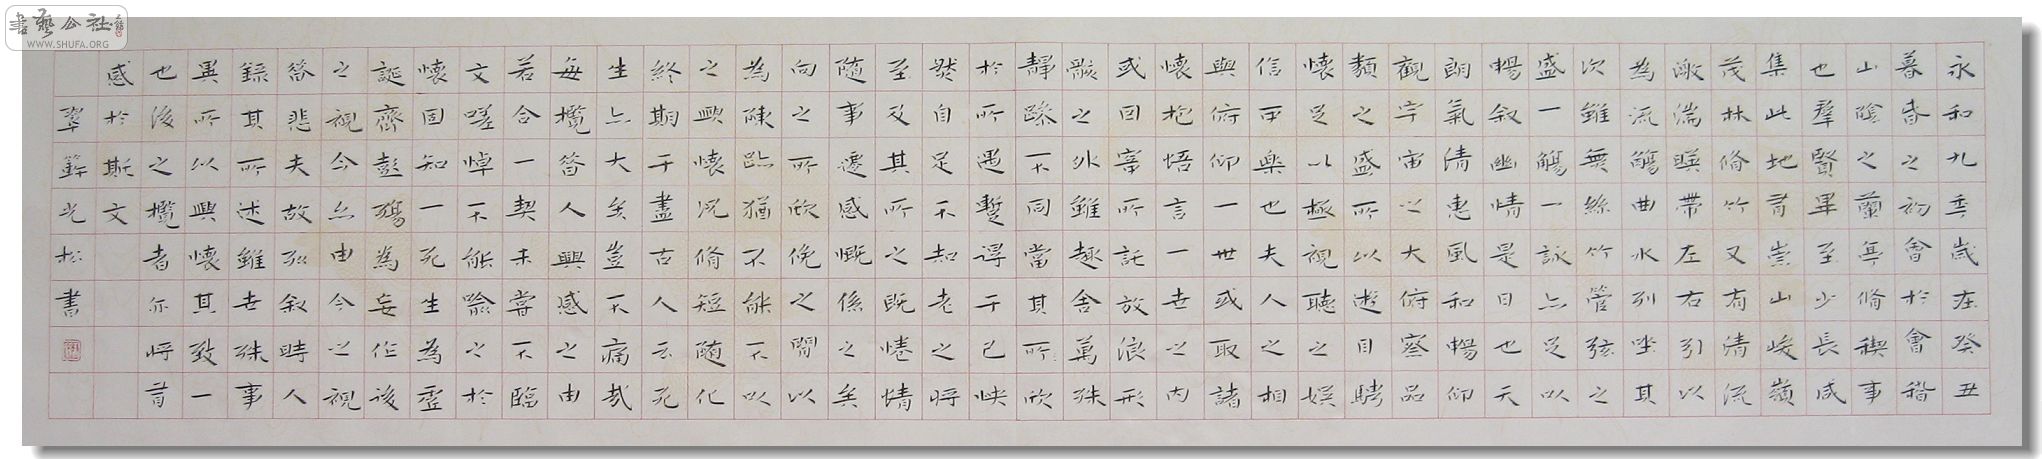 永和九年歲在癸丑
暮春之初會於會稽
山陰之蘭亭脩稧事
也羣賢畢至少長咸
集此地有崇山峻嶺
茂林脩竹又有清流
激湍暎帶左右引以
為流觴曲水列坐其
次雖無絲竹管弦之
盛一觴一詠亦足以
暢叙幽情是日也天
朗氣清惠風和暢仰
觀宇宙之大俯察品
類之盛所以遊目騁
懷足以極視聽之娛
信可樂也夫人之相
與俯仰一世或取諸
懷抱悟言一世之内
或因寄所託放浪形
骸之外雖趣舍萬殊
靜躁不同當其所欣
於所遇蹔得于己怏
然自足不知老之將
至及其所之既惓情
隨事遷感慨係之矣
向之所欣俛之閒以
為陳跡猶不能不以
之興懷況脩短隨化
終期于盡古人云死
生亦大矣豈不痛哉
每攬昔人興感之由
若合一契未嘗不臨
文嗟悼不能喻之於
懷固知一死生為虛
誕齊彭殤為妄作後
之視今亦由今之視
昔悲夫故列叙時人
錄其所述雖世殊事
異所以興懷其致一
也後之攬者亦將有
感於斯文
光松書
書藝公社
WWW.SHUFA.ORG